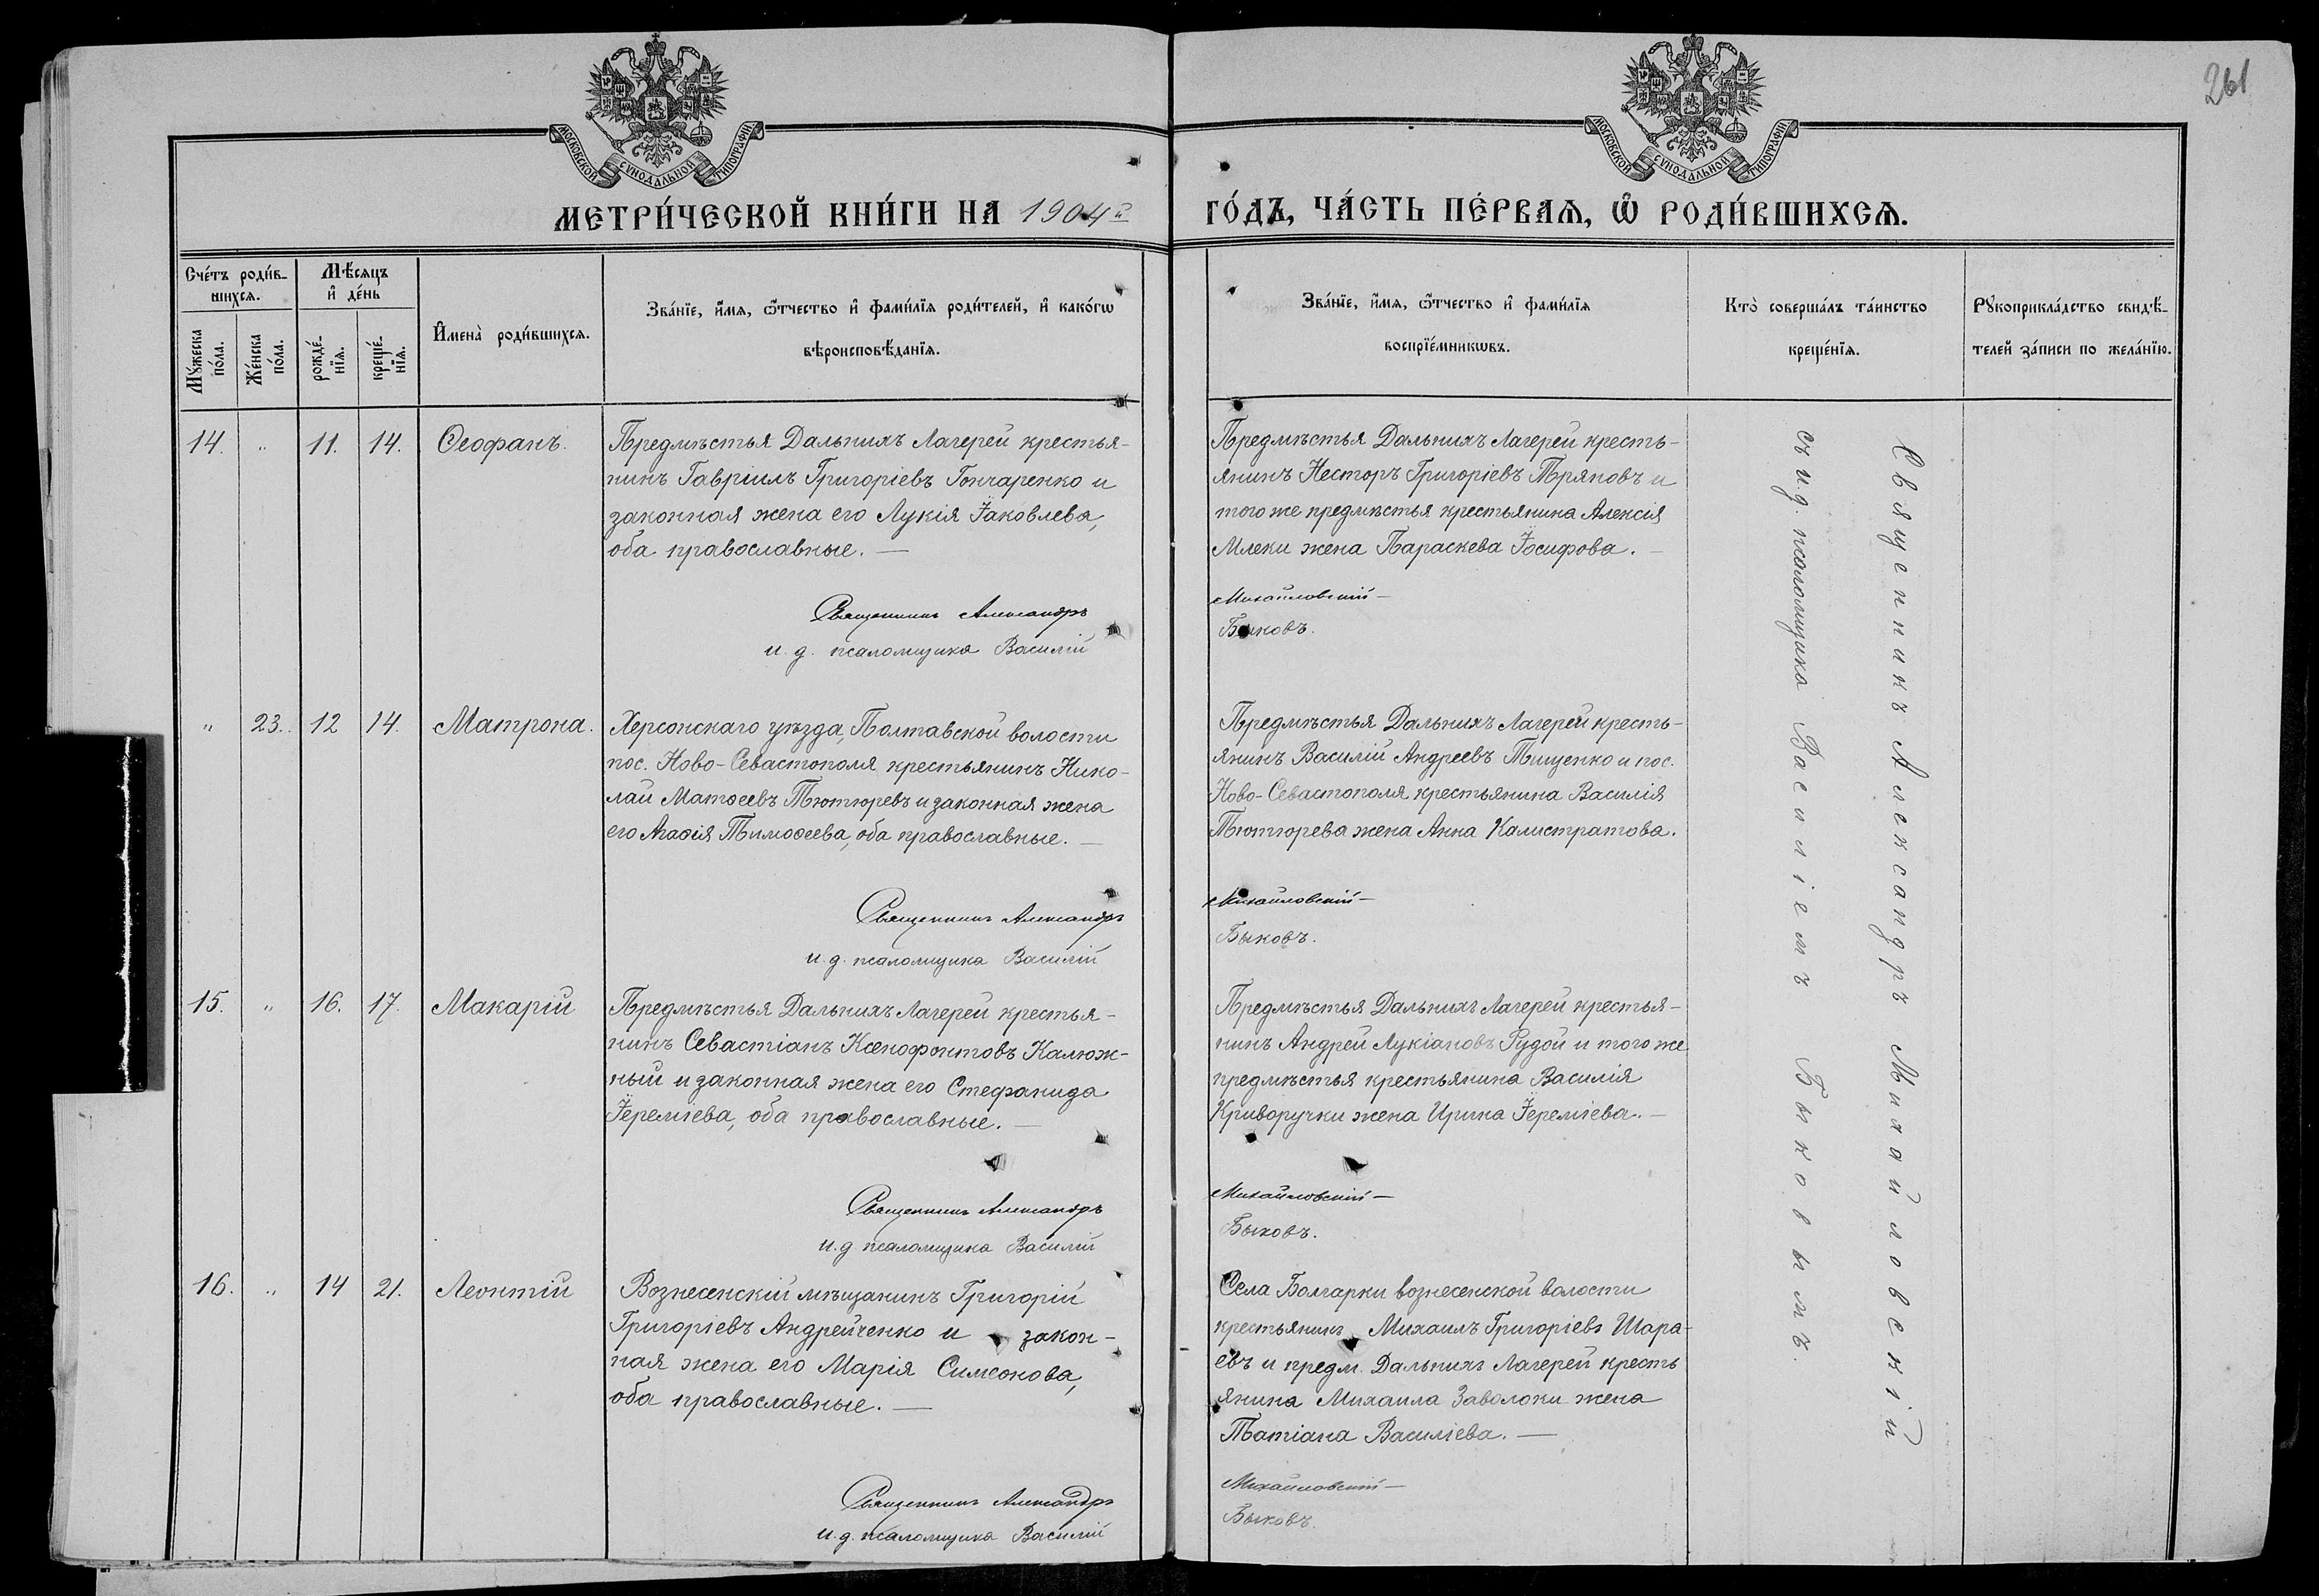 261
МОСКОВСКОЙ СѴНОДАЛЬНОЙ ТИПОГРАФІИ
МОСКОВСКОЙ СѴНОДАЛЬНОЙ ТИПОГРАФІИ
МЕТРИ́ЧЕСКОЙ КНИ́ГИ НА 1904й ГО́ДЪ, ЧА́СТЬ ПЕ́РВАѦ, Ѿ РОДИ́ВШИХСѦ.
Сче́тъ роди́в-
шихсѧ.
Мѣ́сѧцъ
и҆ де́нь
Мꙋ́жеска
по́ла.
Же́нска
по́ла.
рожде́-
нїѧ.
креще́-
нїѧ.
И҆мена̀ роди́вшихсѧ.
Зва́нїе, и҆́мѧ, ѻ҆́тчество и҆ фами́лїѧ роди́телей, и҆ како́гѡ
вѣроисповѣ́данїѧ.
Зва́нїе, и҆́мѧ, ѻ҆́тчество и҆ фами́лїѧ
воспрїе́мникѡвъ.
Кто̀ соверша́лъ та́инство
креще́нїѧ.
Рꙋкоприкла́дство свидѣ́-
телей за́писи по жела́нїю.
14. " 11. 14. Ѳеофанъ.
Предмѣстья Дальнихъ Лагерей крестья-
нинъ Гавріилъ Григоріевъ Гончаренко и
законная жена его Лукія Іаковлева,
оба православные. —
Священникъ Александръ
и. д. псаломщика Василій
Предмѣстья Дальнихъ Лагерей кресть-
янинъ Несторъ Григоріевъ Тряповъ и
того же предмѣстья крестьянина Алексія
Млеки жена Параскева Іосифова. —
Михайловскій —
Быковъ.
" 23. 12 14. Матрона.
Херсонскаго уѣзда, Полтавской волости
пос. Ново-Севастополя крестьянинъ Нико-
лай Матѳеевъ Тютюревъ и законная жена
его Агафія Тимоѳеева, оба православные. —
Священникъ Александръ
и. д. псаломщика Василій
Предмѣстья Дальнихъ Лагерей кресть-
янинъ Василій Андреевъ Тищенко и пос.
Ново-Севастополя крестьянина Василія
Тютюрева жена Анна Калистратова.
Михайловскій —
Быковъ.
15. " 16. 17. Макарій
Предмѣстья Дальнихъ Лагерей крестья-
нинъ Севастіанъ Ксенофонтовъ Калюж-
ный и законная жена его Стефанида
Іереміева, оба православные. —
Священникъ Александръ
и. д. псаломщика Василій
Предмѣстья Дальнихъ Лагерей крестья-
нинъ Андрей Лукіановъ Рудой и того же
предмѣстья крестьянина Василія
Криворучки жена Ирина Іереміева. —
Михайловскій —
Быковъ.
16. " 14 21. Леонтій
Вознесенскій мѣщанинъ Григорій
Григоріевъ Андрейченко и закон-
ная жена его Марія Симеонова,
оба православные. —
Священникъ Александръ
и. д. псаломщика Василій
Села Болгарки вознесенской волости
крестьянинъ Михаилъ Григоріевъ Шара-
евъ и предм. Дальнихъ Лагерей кресть
янина Михаила Заволоки жена
Татіана Василіева. —
Михайловскій —
Быковъ.
Священникъ Александръ Михайловскій
съ и. д. псаломщика Василіемъ Быковымъ.